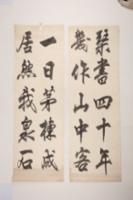 琴書四十年
幾作山中客
一日茅棟成
居然我泉石